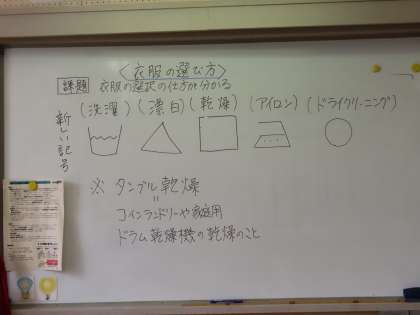 〈衣服の選び方〉
課題 衣服の選択の仕方が分かる
新しい記号
(洗濯) (漂白) (乾燥) (アイロン) (ドライクリーニング)
※ タンブル乾燥
=
コインランドリーや家庭用
ドラム乾燥機の乾燥のこと